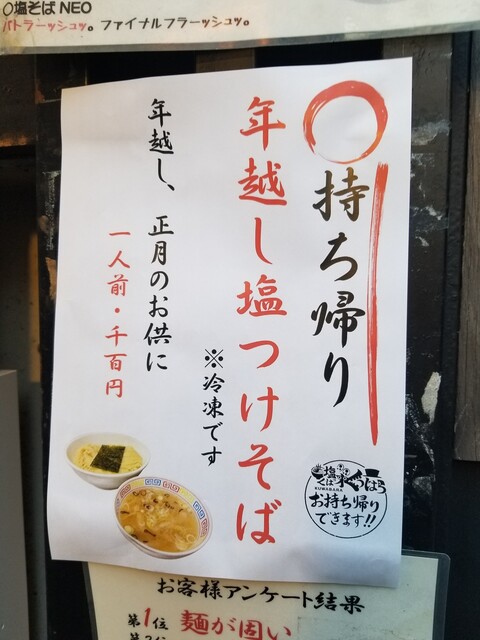 〇塩そば NEO
パトラーッシュッ。ファイナルフラーッシュッ。
持ち帰り
年越し塩つけそば
※冷凍です
年越し、正月のお供に
一人前・千百円
KUWABARA
お持ち帰り
できます!!
お客様アンケート結果
第1位 麺が固い